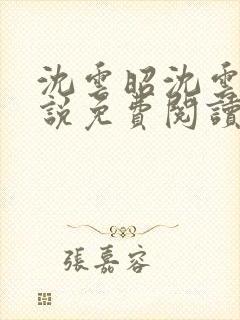 沈雲昭沈雲
說免費閱讀
張嘉容